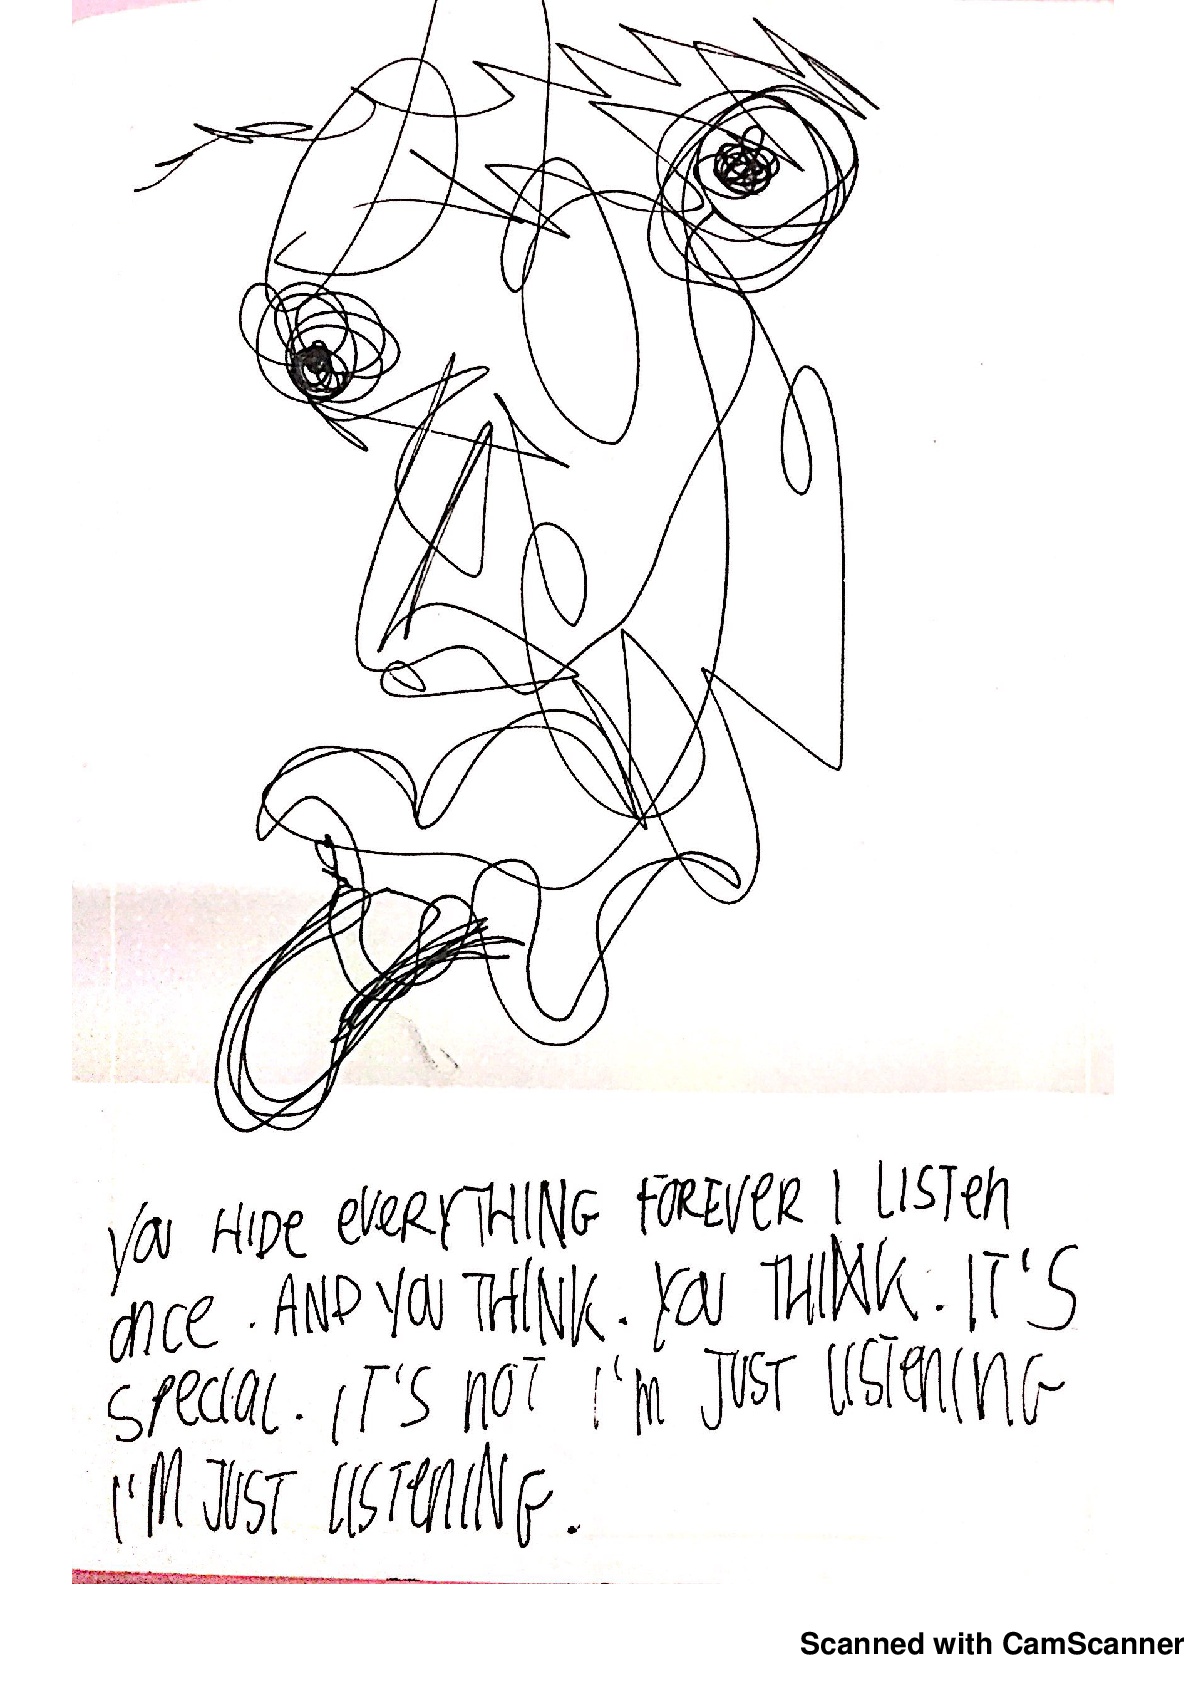 YOU HIDE EVERYTHING FOREVER I LISTEN
ONCE. AND YOU THINK. YOU THINK. IT'S
SPECIAL. IT'S NOT I'M JUST LISTENING
I'M JUST LISTENING.
Scanned with CamScanner